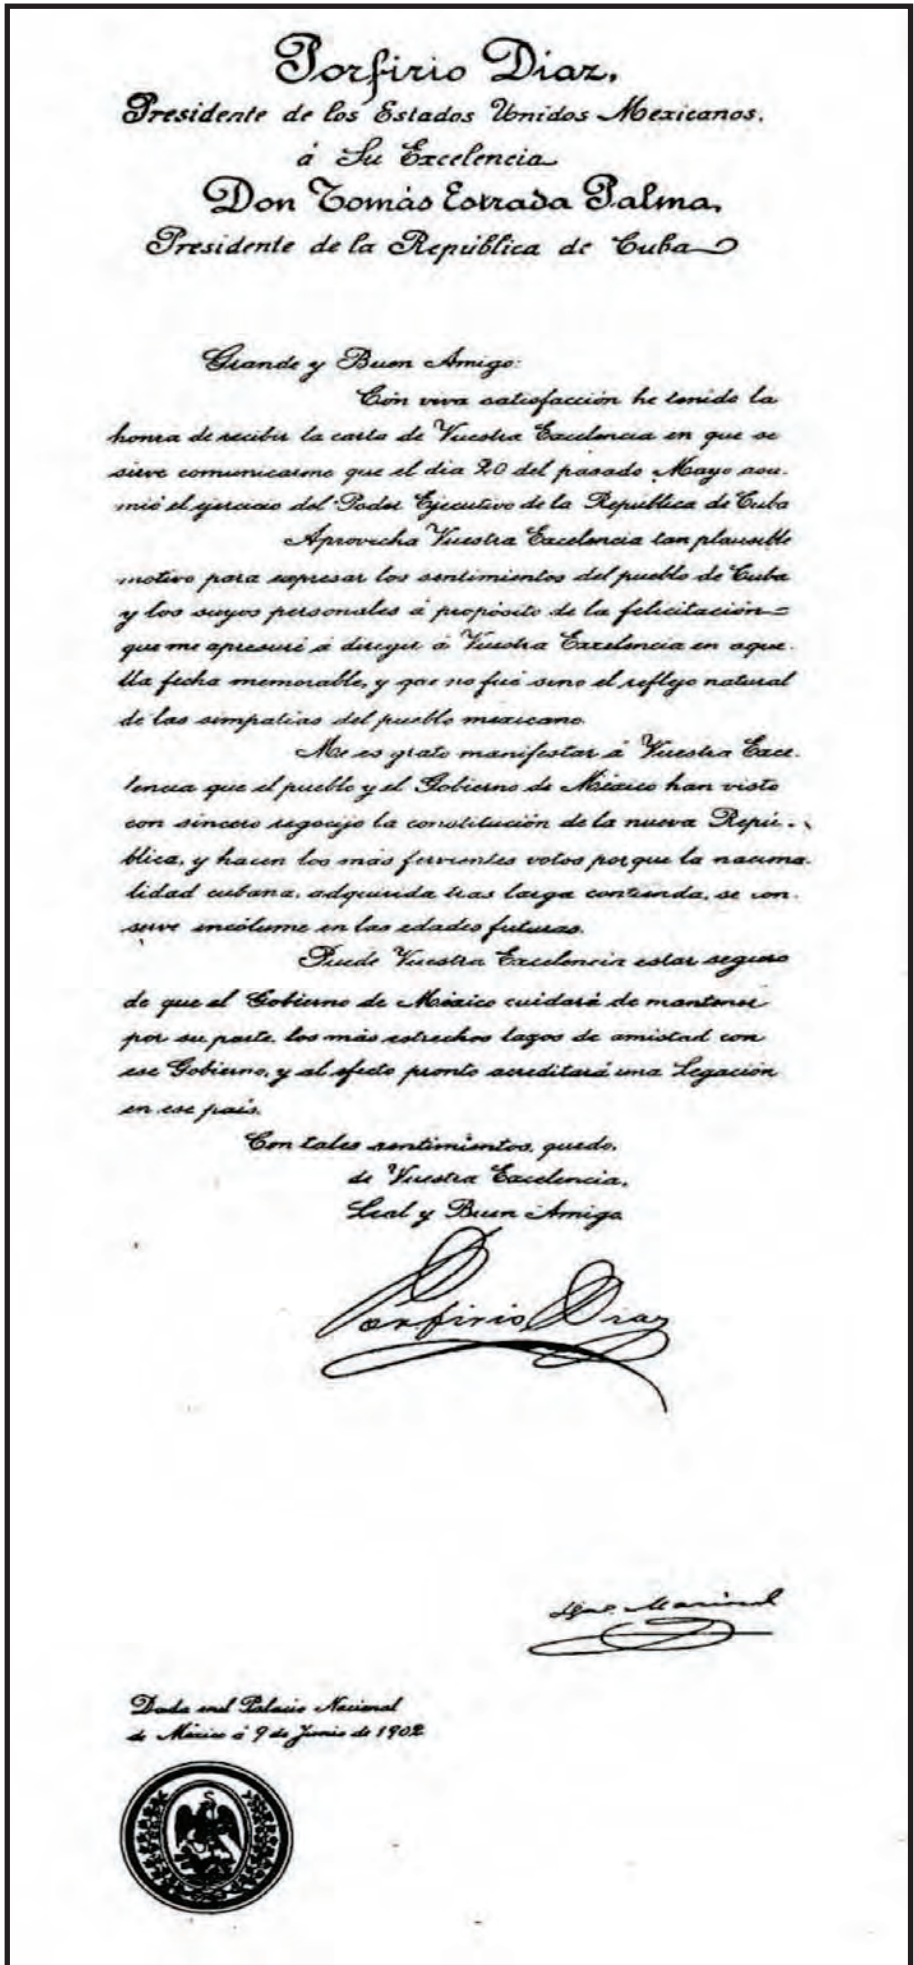 Porfirio Diaz,
Presidente de los Estados Unidos Mexicanos.
á Su Excelencia
Don Tomás Estrada Palma,
Presidente de la República de Cuba
Grande y Buen Amigo:
Con viva satisfacción he tenido la
honra de recibir la carta de Vuestra Excelencia en que se
sirve comunicarme que el dia 20 del pasado Mayo asu-
mió el ejercicio del Poder Ejecutivo de la República de Cuba
Aprovecha Vuestra Excelencia tan plausible
motivo para expresar los sentimientos del pueblo de Cuba
y los suyos personales á propósito de la felicitación
que me apresuré á dirigir á Vuestra Excelencia en aque-
lla fecha memorable, y que no fué sino el reflejo natural
de las simpatias del pueblo mexicano.
Me es grato manifestar á Vuestra Exce-
lencia que el pueblo y el Gobierno de México han visto
con sincero regocijo la constitución de la nueva Repú-
blica, y hacen los más fervientes votos porque la naciona-
lidad cubana, adquirida tras larga contienda, se con-
serve incólume en las edades futuras.
Puede Vuestra Excelencia estar seguro
de que el Gobierno de México cuidará de mantener
por su parte, los más estrechos lazos de amistad con
ese Gobierno, y al efecto pronto acreditará una Legación
en ese país.
Con tales sentimientos, quedo,
de Vuestra Excelencia,
Leal y Buen Amigo
Porfirio Diaz
Igno. Mariscal
Dada en el Palacio Nacional
de México á 9 de Junio de 1902